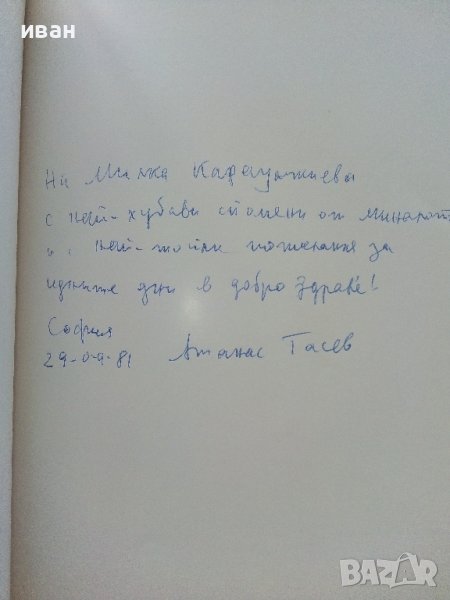 иван
На Милка Караджиева
с най-хубави спомени от миналото
и най-топли пожелания за
идните дни в добро здраве!
София
29-09-81 Атанас Тасев
BAZAR